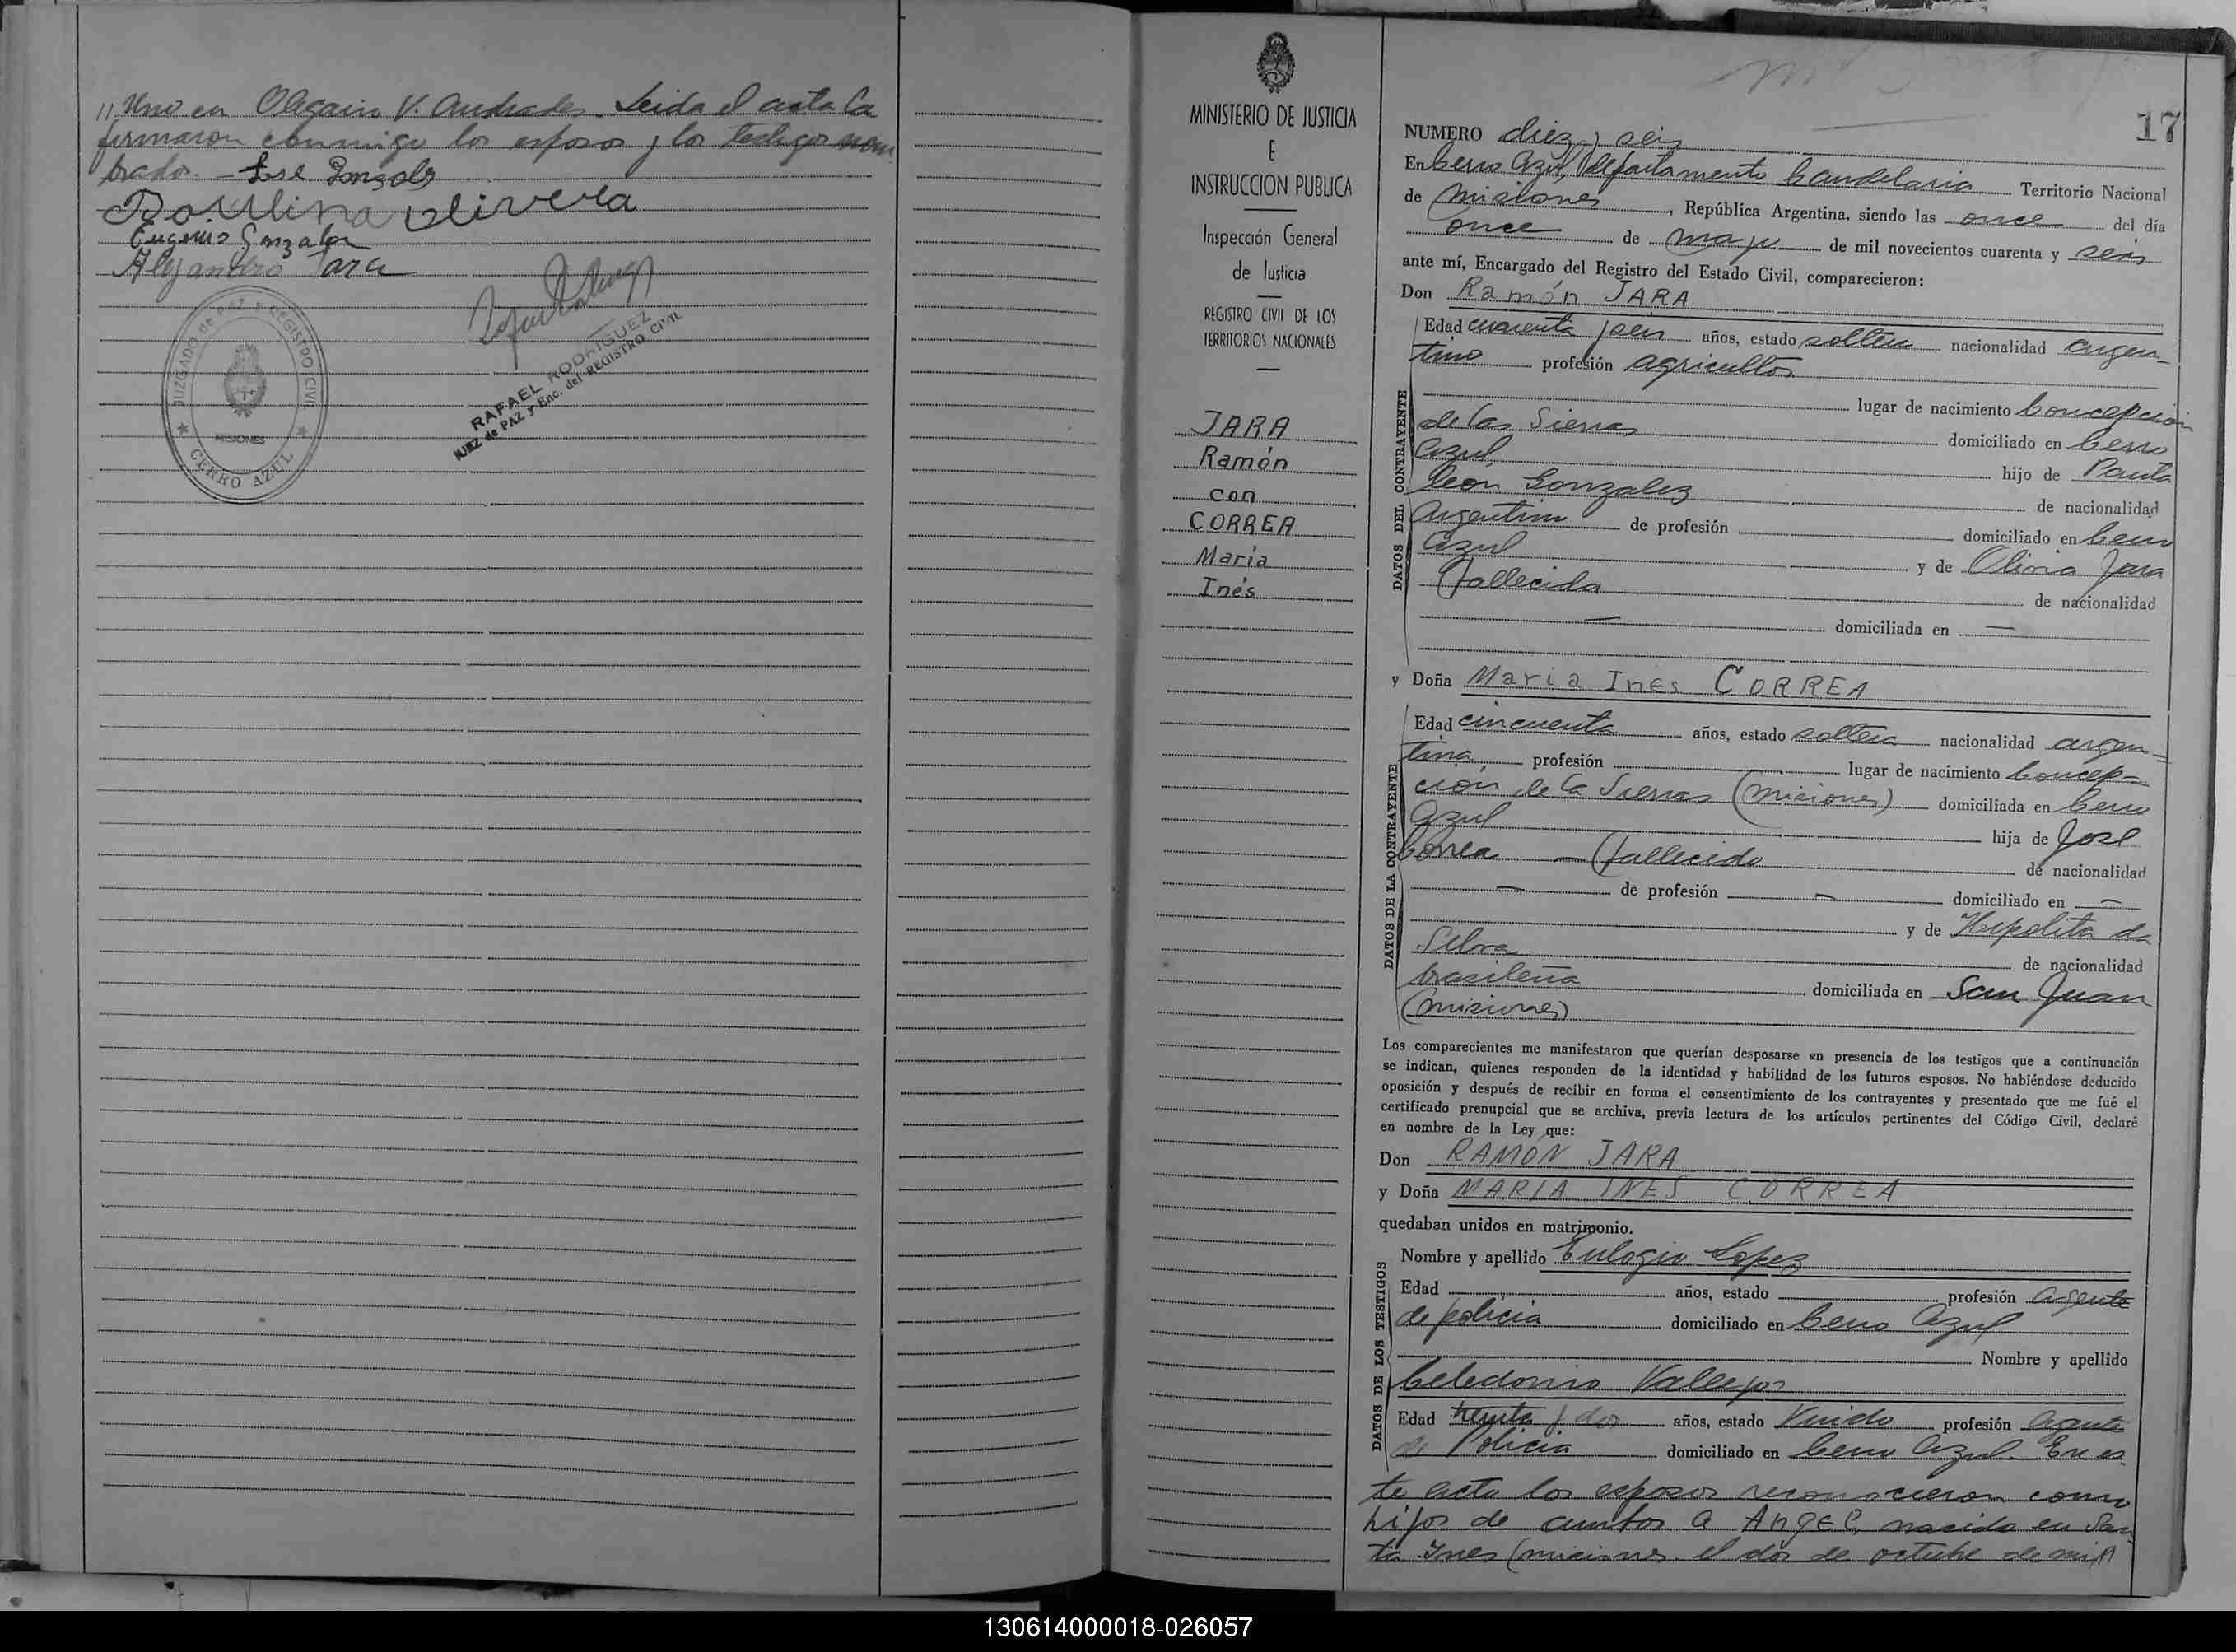 // Uno en Olegario V. Andrades. Leida el acta la
firmaron conmigo los esposos y los testigos nom
brados. - Jose Gonzalez
Paulina Olivera
Eugenio Gonzalez
Alejandro Jara
JUZGADO de PAZ Y REGISTRO CIVIL
MISIONES
CERRO AZUL
RAFAEL RODRIGUEZ
JUEZ de PAZ y Enc. del REGISTRO CIVIL
MINISTERIO DE JUSTICIA
E
INSTRUCCION PUBLICA
Inspección General
de Justicia
REGISTRO CIVIL DE LOS
TERRITORIOS NACIONALES
JARA
Ramón
con
CORREA
María
Inés
17
NUMERO diez y seis
En Cerro Azul, departamento Candelaria Territorio Nacional
de Misiones, República Argentina, siendo las once del día
once de mayo de mil novecientos cuarenta y seis
ante mí, Encargado del Registro del Estado Civil, comparecieron:
Don Ramón JARA
DATOS DEL CONTRAYENTE
Edad cuarenta y seis años, estado soltero nacionalidad argen-
tino profesión agricultor
lugar de nacimiento Concepción
de las Sierras domiciliado en Cerro
Azul hijo de Panta
león Gonzalez de nacionalidad
Argentino de profesión domiciliado en Cerro
Azul y de Olivia Jara
(fallecida de nacionalidad
— domiciliada en —
y Doña Maria Ines CORREA
DATOS DE LA CONTRAYENTE
Edad cincuenta años, estado soltera nacionalidad argen-
tina, profesión lugar de nacimiento Concep-
ción de la Sierras (Misiones) domiciliada en Cerro
Azul hija de José
Correa — (fallecido de nacionalidad
— de profesión — domiciliado en —
y de Hipolita da
Silva de nacionalidad
brasileña domiciliada en San Juan
(Misiones)
Los comparecientes me manifestaron que querían desposarse en presencia de los testigos que a continuación
se indican, quienes responden de la identidad y habilidad de los futuros esposos. No habiéndose deducido
oposición y después de recibir en forma el consentimiento de los contrayentes y presentado que me fué el
certificado prenupcial que se archiva, previa lectura de los artículos pertinentes del Código Civil, declaré
en nombre de la Ley que:
Don RAMÓN JARA
y Doña MARIA INES CORREA
quedaban unidos en matrimonio.
DATOS DE LOS TESTIGOS
Nombre y apellido Eulogio Lopez
Edad años, estado profesión agente
de policia domiciliado en Cerro Azul
Nombre y apellido
Celedonio Vallejos
Edad treinta y dos años, estado Viudo profesión agente
de Policia domiciliado en Cerro Azul. En es
te acto los esposos reconocieron como
hijos de ambos a Angel, nacido en San
ta Ines (misiones el dos de octubre de mil
130614000018-026057